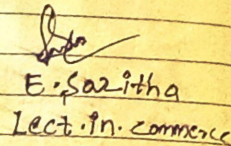 E. Saritha
Lect. in. commerce